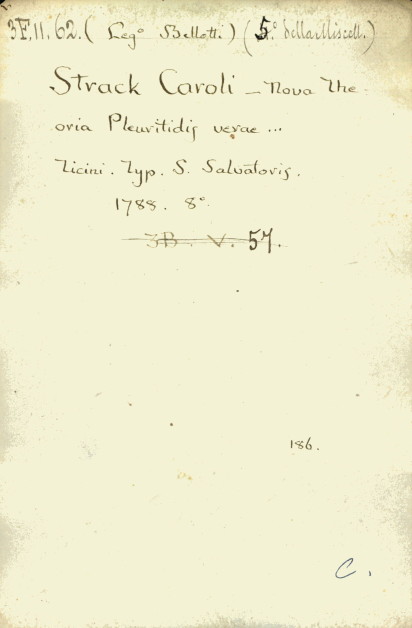 3F.11.62. (Lego Bellotti.) (5.° della Miscell.)
Strack Caroli – Nova The
oria Pleuritidis verae ...
Ticini. Typ. S. Salvatoris.
1788. 8°.
3B. V. 57.
186.
C.